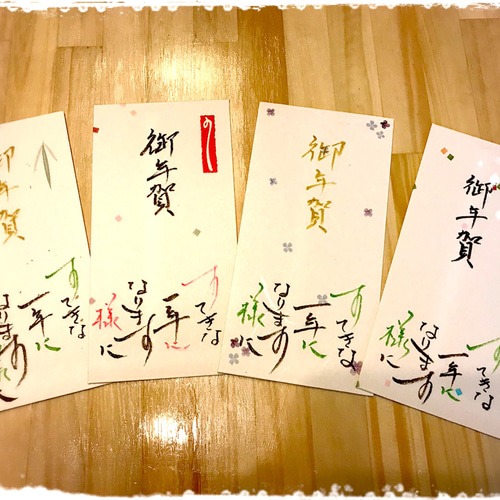 御年賀
すてきな
一年に
なります
様に
のし
御年賀
すてきな
一年に
なります
様に
御年賀
すてきな
一年に
なります
様に
御年賀
すてきな
一年に
なります
様に